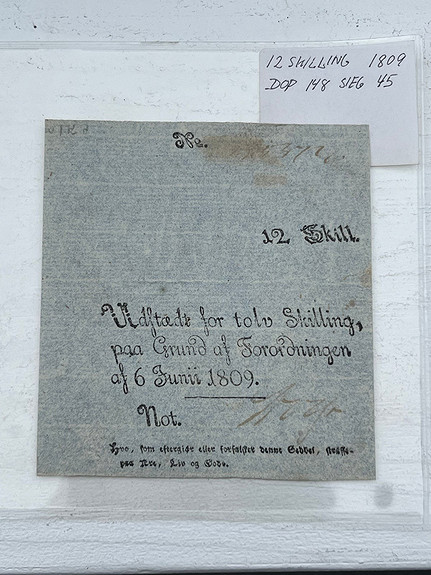 12 SKILLING 1809
DOP 148 SIEG 45
No.
12 Skill.
Udstædt for tolv Skilling,
paa Grund af Forordningen
af 6 Junii 1809.
Not.
Hvo, som eftergiør eller forfalsker denne Seddel, straffes
paa Ære, Liv og Gods.